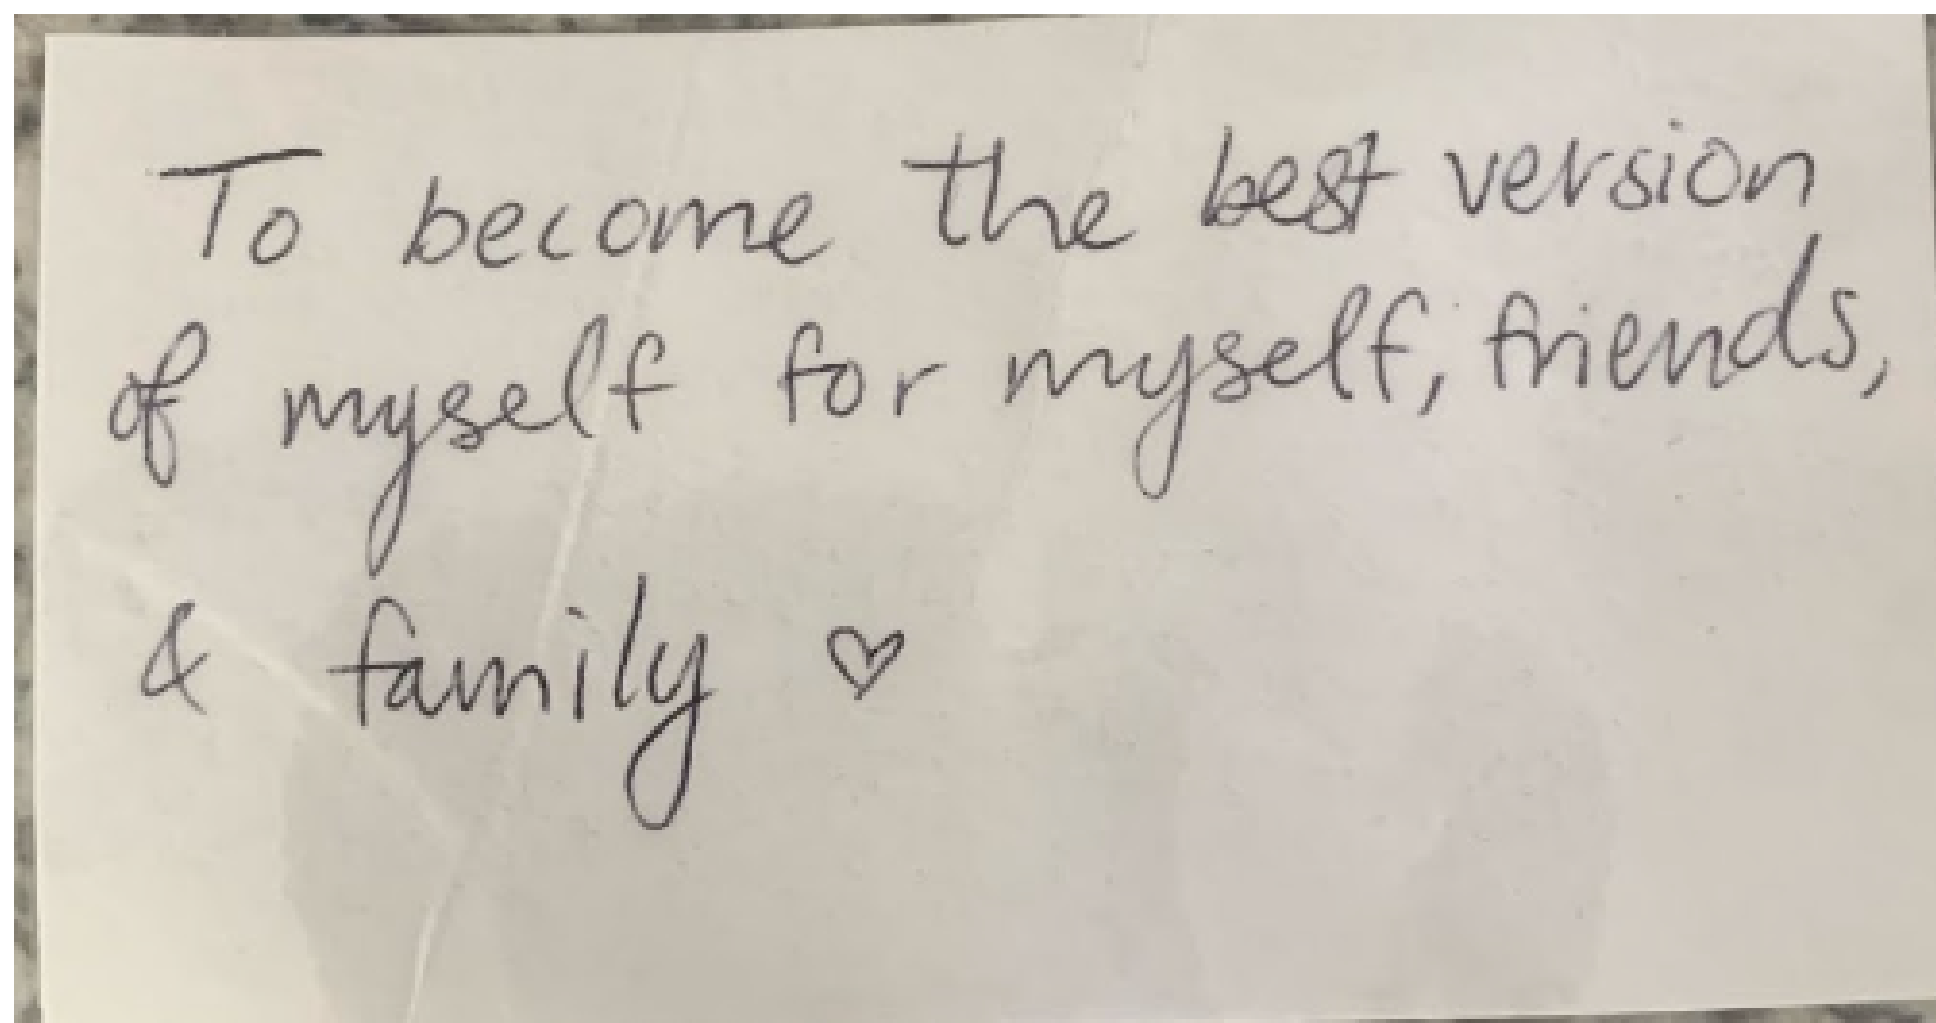 To become the best version
of myself for myself, friends,
& family ♡